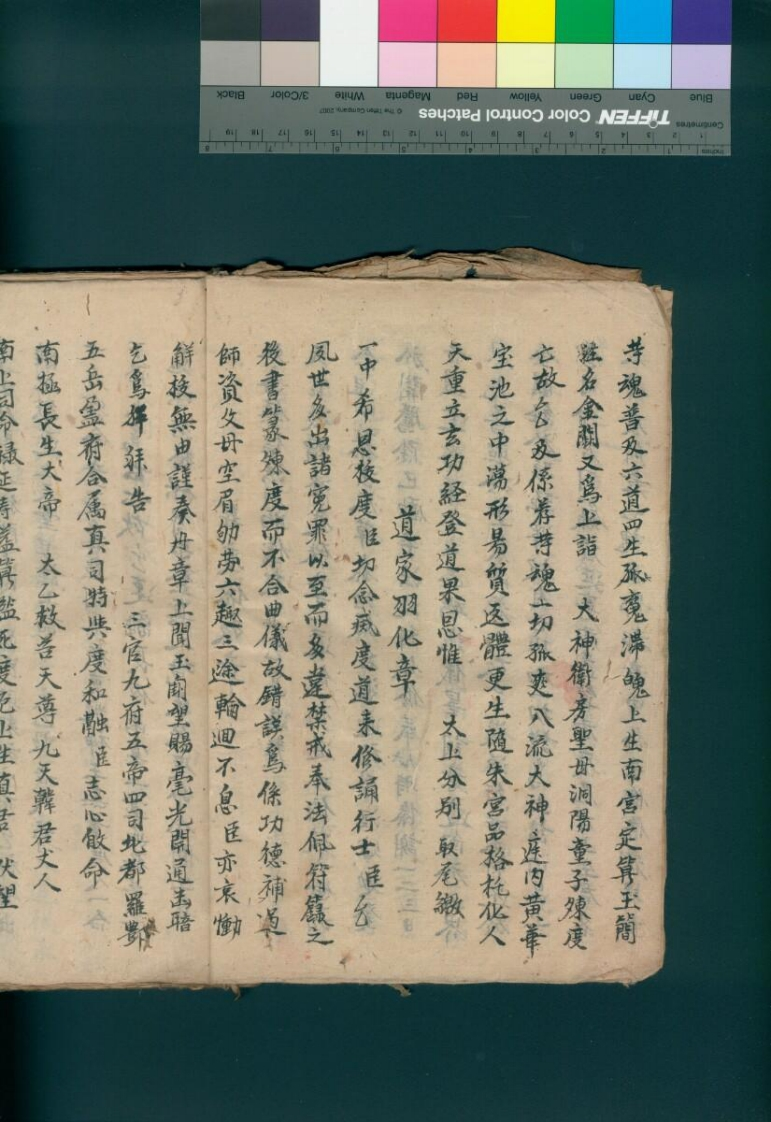 苧魂普及六道四生孤魔滯魄上生南宮定筭玉簡
註名金闕又爲上詣 大神衛房聖母洞陽童子煉度
亡故乞及係荐苧魂一切孤爽八流大神庭内黄華
宝池之中蕩形易質返體更生隨朱宮品格托化人
天重立玄功経登道果恩惟 太上分別 取尾繳
道家羽化章
一中希恩校度臣切念咸度道未修誦行士 臣乞
夙世多出諸寃罪以至而多違禁戒奉法佩符籙之
後書篆煉度而不合曲儀故錯誤爲係功德補過
師資父母空眉劬劳六趣三途輪迴不息臣亦哀慟
觧校無由謹奏丹章上聞玉闕望賜毫光開通幽暗
乞爲拜告 三官九府五帝四司北都羅酆
五岳盈府合属真司特與度和 臣志心皈命
南極長生大帝 太乙救苦天尊九天韓君丈人
南上司命禄延壽益筭監死度厄上生真君 伏望
TIFFEN Color Control Patches
© The Tiffen Company, 2007
Centimetres
Inches
Blue Cyan Green Yellow Red Magenta White 3/Color Black
1 2 3 4 5 6 7 8 9 10 11 12 13 14 15 16 17 18 19
1 2 3 4 5 6 7 8